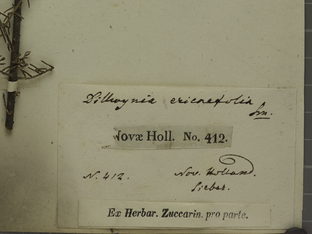 Dillwynia ericaefolia
Sm.
Novæ Holl. No. 412.
N. 412. Nov. Holland.
Sieber.
Ex Herbar. Zuccarin. pro parte.